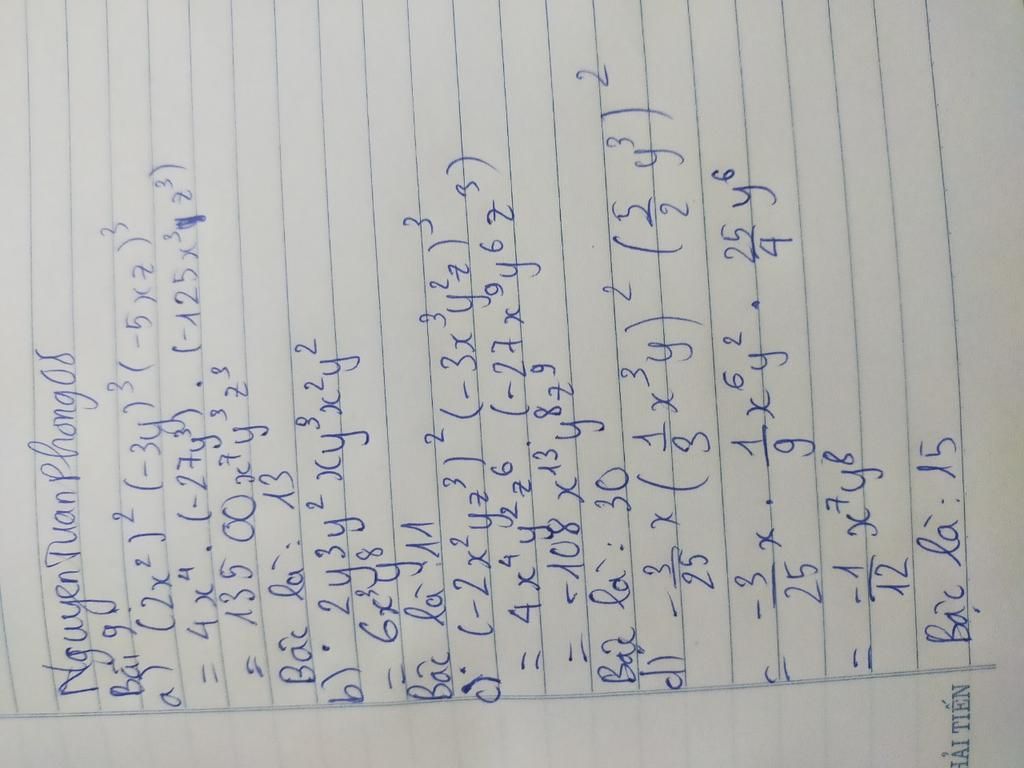 NguyenTuanPhong08
Bài 9
a) (2x²)² (-3y)³ (-5xz)³
= 4x⁴. (-27y³). (-125x³ z³)
= 13500x⁷y³z³
Bậc là: 13
b) 2y3y² xy³x²y²
= 6x³y⁸
Bậc là: 11
c) (-2x²yz³)² (-3x³y²z)³
= 4x⁴y²z⁶ (-27x⁹y⁶z³)
= -108x¹³y⁸z⁹
Bậc là: 30
d) -3/25 x (1/3 x³y)² (5/2 y³)²
= -3/25 x . 1/9 x⁶y² . 25/4 y⁶
= -1/12 x⁷y⁸
Bậc là: 15
HẢI TIẾN